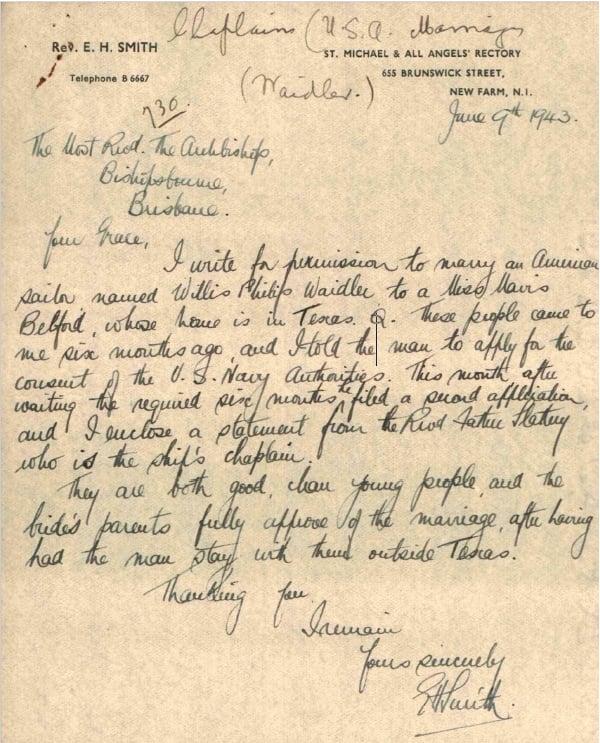 Chaplains (U.S.A. Marriage
Rev. E. H. SMITH
ST. MICHAEL & ALL ANGELS' RECTORY
Telephone B 6667
655 BRUNSWICK STREET,
(Waidler.)
NEW FARM, N.1.
730.
June 9th 1943.
The Most Revd. The Archbishop,
Bishopsbourne,
Brisbane.
Your Grace,
I write for permission to marry an American
sailor named Willis Philip Waidler to a Miss Mavis
Belford, whose home is in Texas. Q. These people came to
me six months ago, and I told the man to apply for the
consent of the U.S. Navy Authorities. This month after
waiting the required six months he filed a second application,
and I enclose a statement from the Revd Father Slattery
who is the ship's chaplain.
They are both good, clean young people, and the
bride's parents fully approve of the marriage, after having
had the man stay with them outside Texas.
Thanking you
I remain
Yours sincerely
EHSmith.